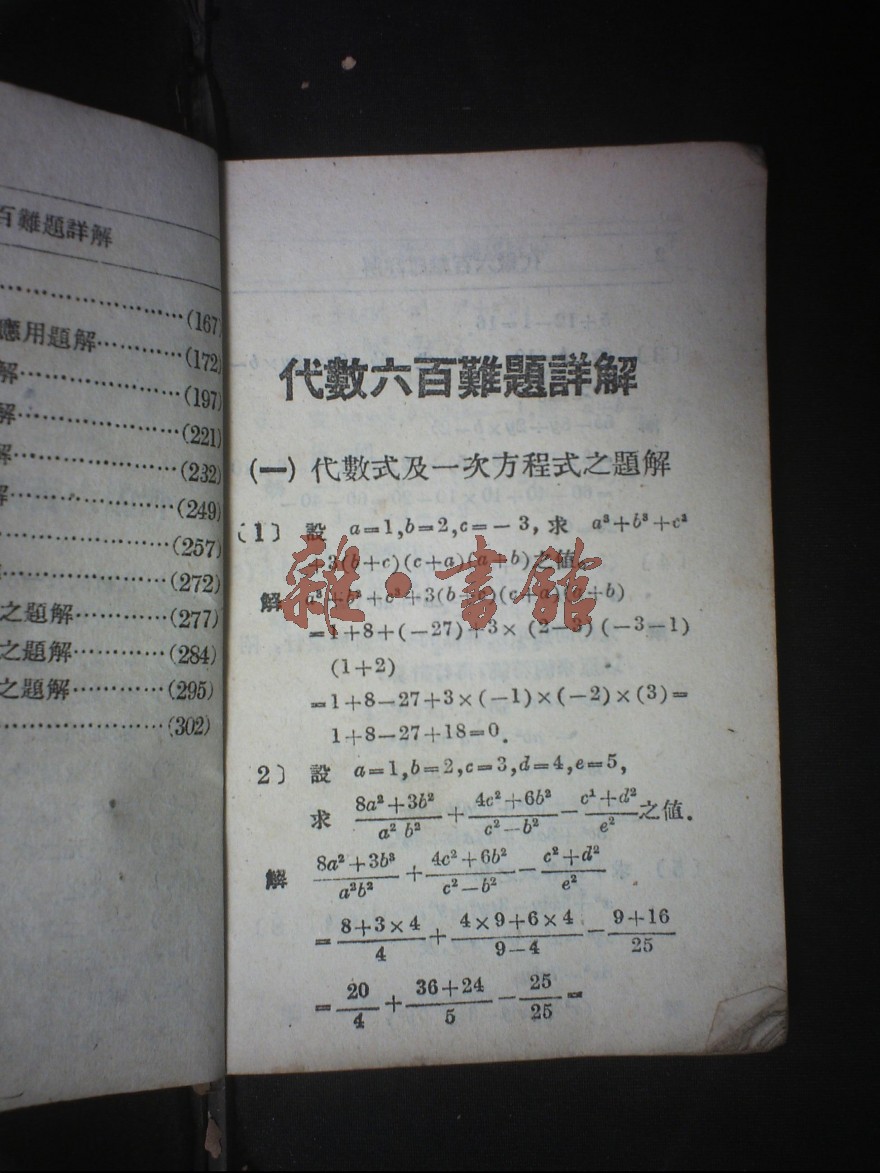 百難題詳解
(167)
應用題解…………(172)
解………………(197)
解………………(221)
解………………(232)
解………………(249)
………………(257)
………………(272)
之題解…………(277)
之題解…………(284)
之題解…………(295)
………………(302)
代數六百難題詳解
(一) 代數式及一次方程式之題解
〔1〕 設 a=1,b=2,c=-3,求 a³+b³+c³
+3(b+c)(c+a)(a+b)之值。
解 a³+b³+c³+3(b+c)(c+a)(a+b)
=1+8+(-27)+3×(2-3)(-3-1)
(1+2)
=1+8-27+3×(-1)×(-2)×(3)=
1+8-27+18=0.
2〕 設 a=1,b=2,c=3,d=4,e=5,
求 (8a²+3b²)/(a² b²) + (4c²+6b²)/(c²-b²) - (c¹+d²)/e² 之值.
解 (8a²+3b³)/(a²b²) + (4c²+6b²)/(c²-b²) - (c²+d²)/e²
= (8+3×4)/4 + (4×9+6×4)/(9-4) - (9+16)/25
= 20/4 + (36+24)/5 - 25/25 =
雜·書館